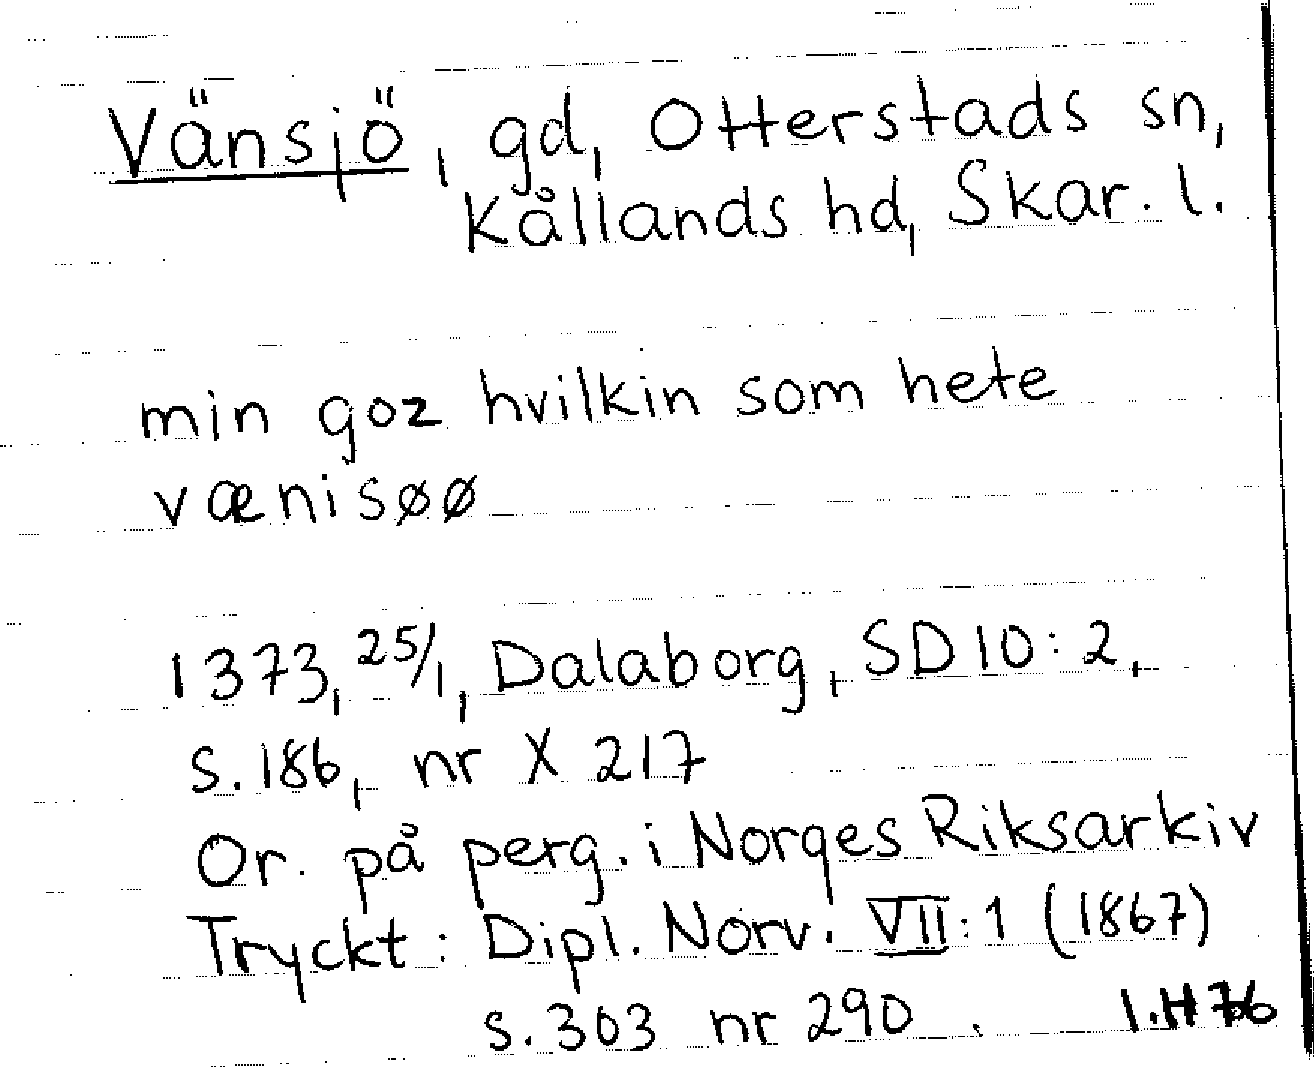 Vänsjö, gd, Otterstads sn,
Kållands hd, Skar. l.
min goz hvilkin som hete
vænisøø
1373, 25/1, Dalaborg, SD 10:2,
s. 186, nr X 217
Or. på perg. i Norges Riksarkiv
Tryckt: Dipl. Norv. VII:1 (1867)
s. 303 nr 290. I.H 76